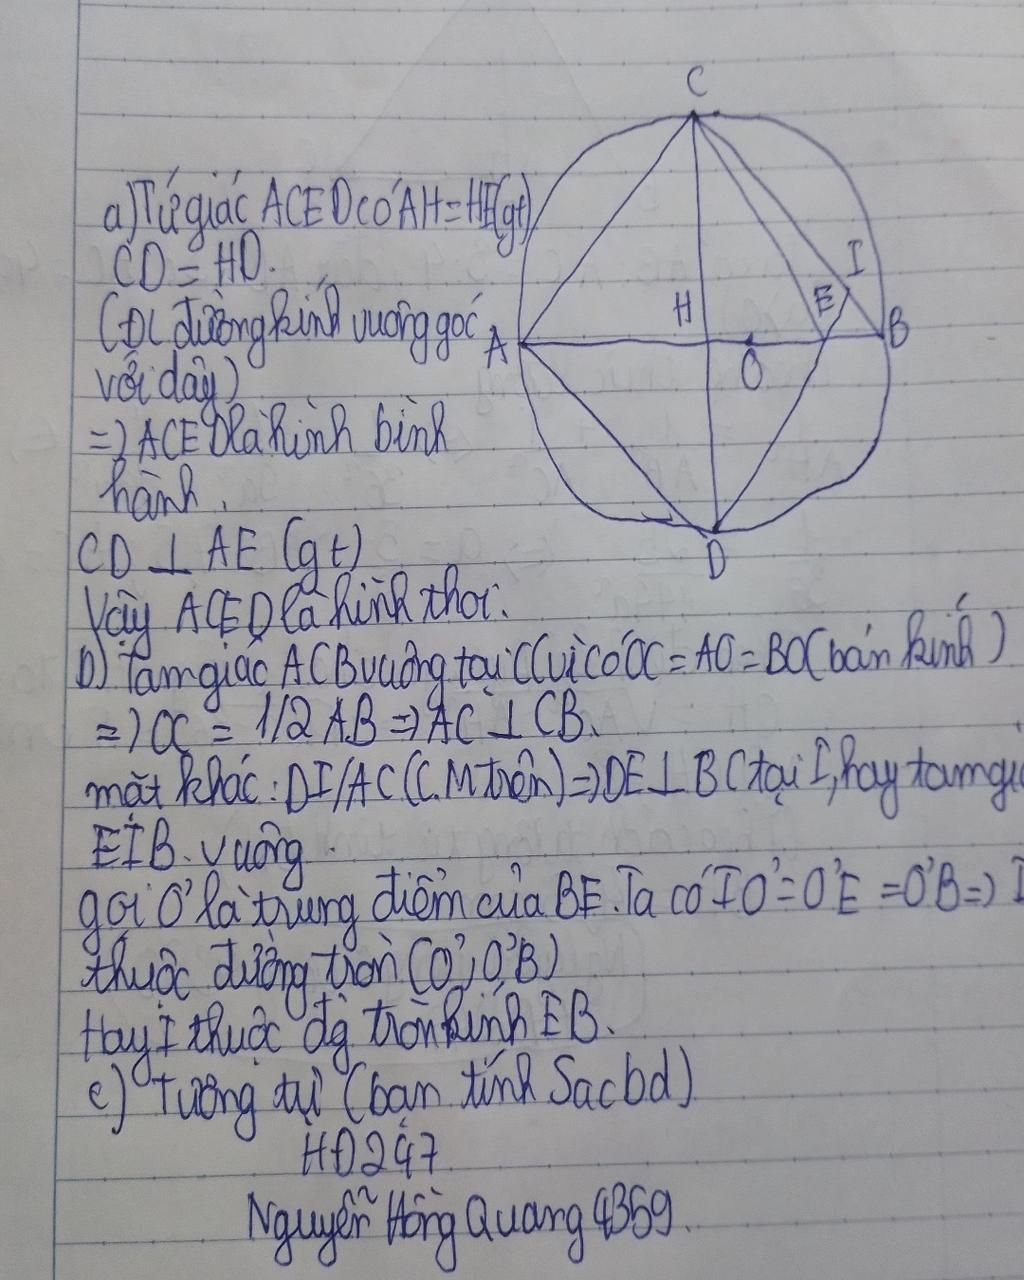 C
a) Tứ giác ACED có AH = HE (gt)
CD = HD.
(Đl đường kính vuông góc
với dây)
=> ACED là hình bình
hành.
CD ⊥ AE (gt)
Vậy ACED là hình thoi.
I
H
E
A
B
O
D
b) Tam giác ACB vuông tại C (vì có OC = AO = BO (bán kính)
=> OC = 1/2 AB => AC ⊥ CB.
mặt khác: DI/AC (C.M trên) => DE ⊥ BC tại I, hay tam gi
EIB vuông.
gọi O' là trung điểm của BE. Ta có IO' = O'E = O'B => I
thuộc đường tròn (O'; O'B)
Hay I thuộc đg tròn kính EB.
c) Tương tự (bạn tính Sacbd)
HĐ247
Nguyễn Hồng Quang 4359.